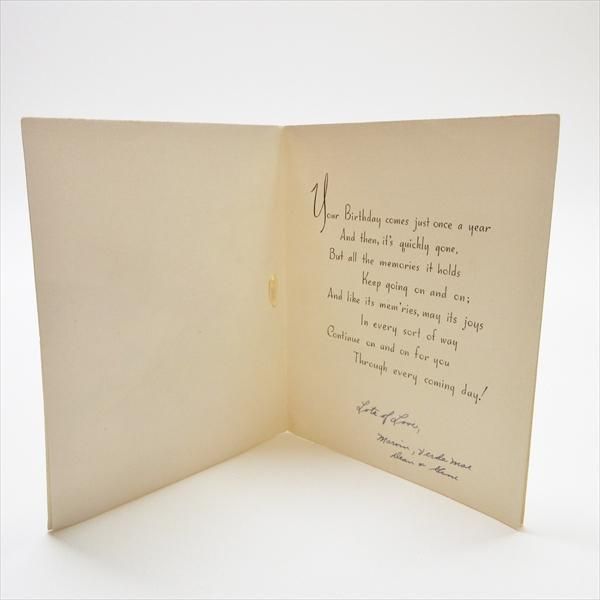 Your Birthday comes just once a year
And then, it's quickly gone,
But all the memories it holds
Keep going on and on;
And like its mem'ries, may its joys
In every sort of way
Continue on and on for you
Through every coming day!
Lots of Love,
Marvin, Verda Mae
Dean &